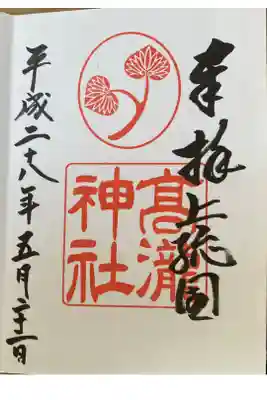 奉拝 上総国
髙瀧
神社
平成二十八年五月二十一日